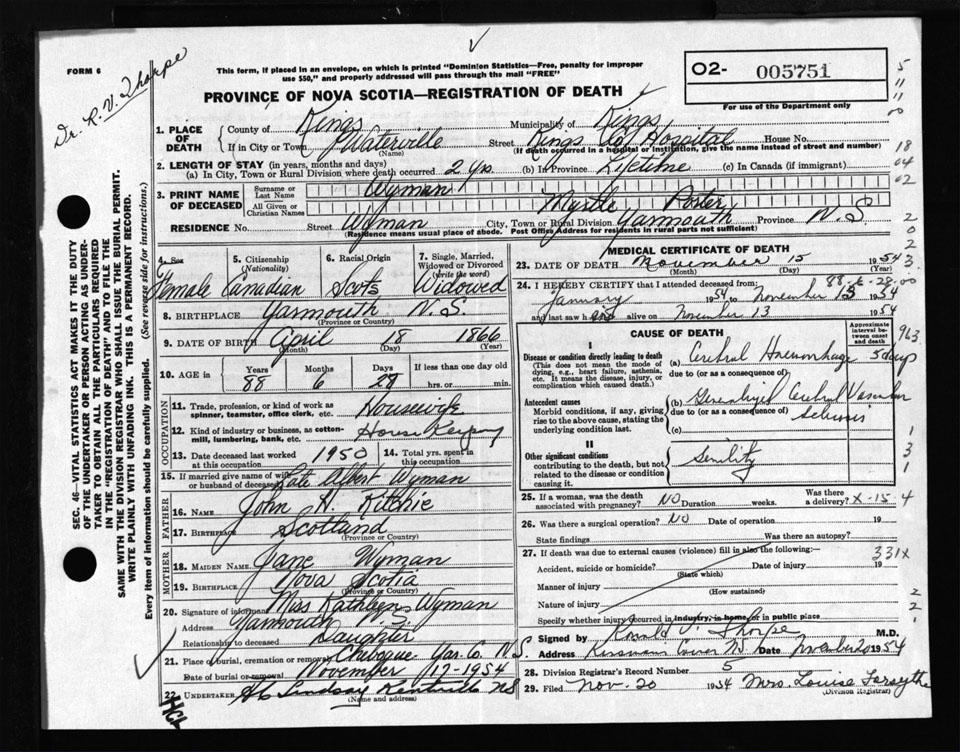 FORM 6
Dr. R. V. Thorpe
This form, if placed in an envelope, on which is printed "Dominion Statistics—Free, penalty for improper
use $50," and properly addressed will pass through the mail "FREE"
O2- 005751
For use of the Department only
PROVINCE OF NOVA SCOTIA—REGISTRATION OF DEATH
1. PLACE OF DEATH { County of Kings Municipality of Kings
If in City or Town Waterville (Name) Street Kings Co Hospital House No.
(If death occurred in a hospital or institution, give the name instead of street and number)
2. LENGTH OF STAY (in years, months and days)
(a) In City, Town or Rural Division where death occurred 2 yrs. (b) In Province Lifetime (c) In Canada (if immigrant)
3. PRINT NAME OF DECEASED { Surname or Last Name Wyman
All Given or Christian Names Myrtle
RESIDENCE No. Street Wyman City, Town or Rural Division Yarmouth Province N.S
(Residence means usual place of abode. Post Office Address for residents in rural parts not sufficient)
4. Sex Female
5. Citizenship (Nationality) Canadian
6. Racial Origin Scots
7. Single, Married, Widowed or Divorced (write the word) Widowed
8. BIRTHPLACE Yarmouth N.S. (Province or Country)
9. DATE OF BIRTH April 18 1866
(Month) (Day) (Year)
10. AGE in { Years 88 Months 6 Days If less than one day old hrs. or min.
OCCUPATION
11. Trade, profession, or kind of work as spinner, teamster, office clerk, etc. Housewife
12. Kind of industry or business, as cotton-mill, lumbering, bank, etc. House Keeping
13. Date deceased last worked at this occupation 1950 14. Total yrs. spent in this occupation
15. If married give name of wife or husband of deceased Late Albert Wyman
FATHER
16. Name John H. Ritchie
17. Birthplace Scotland (Province or Country)
MOTHER
18. MAIDEN NAME. Jane Wyman
19. BIRTHPLACE. Nova Scotia (Province or Country)
20. Signature of informant Miss Kathleen Wyman
Address Yarmouth N.S.
Relationship to deceased Daughter
21. Place of burial, cremation or removal Chebogue Yar. Co. N.S.
Date of burial or removal November 17-1954
22. UNDERTAKER Lindsay Kentville NS
(Name and address)
MEDICAL CERTIFICATE OF DEATH
23. DATE OF DEATH November 15 1954
(Month) (Day) (Year)
24. I HEREBY CERTIFY that I attended deceased from:
January 1954 to November 13 1954
and last saw h alive on November 13 1954
CAUSE OF DEATH
Approximate interval between onset and death
I
Disease or condition directly leading to death
(This does not mean the mode of dying, e.g., heart failure, asthenia, etc. It means the disease, injury, or complication which caused death.)
(a) Cerebral Haemorrhage 5 days
due to (or as a consequence of)
Antecedent causes
Morbid conditions, if any, giving rise to the above cause, stating the underlying condition last.
(b) Generalized Cerebral Vascular
due to (or as a consequence of)
(c)
II
Other significant conditions
contributing to the death, but not related to the disease or condition causing it.
Senility
25. If a woman, was the death associated with pregnancy? NO Duration weeks. Was there a delivery? X-15
26. Was there a surgical operation? NO Date of operation 19
State findings Was there an autopsy?
27. If death was due to external causes (violence) fill in also the following:— 331X
Accident, suicide or homicide? Date of injury 19
(State which)
Manner of injury (How sustained)
Nature of injury
Specify whether injury occurred in industry, in home, or in public place
Signed by Ronald V. Thorpe M.D.
Address N.S. Date November 20 1954
28. Division Registrar's Record Number 5
29. Filed Nov-20 1954 Mrs. Louise Forsythe
(Division Registrar)
SEC. 46—VITAL STATISTICS ACT MAKES IT THE DUTY
OF THE UNDERTAKER OR PERSON ACTING AS UNDER-
TAKER TO OBTAIN ALL THE PARTICULARS REQUIRED
IN THE "REGISTRATION OF DEATH" AND TO FILE THE
SAME WITH THE DIVISION REGISTRAR WHO SHALL ISSUE THE BURIAL PERMIT.
WRITE PLAINLY WITH UNFADING INK. THIS IS A PERMANENT RECORD.
Every item of information should be carefully supplied. (See reverse side for instructions.)